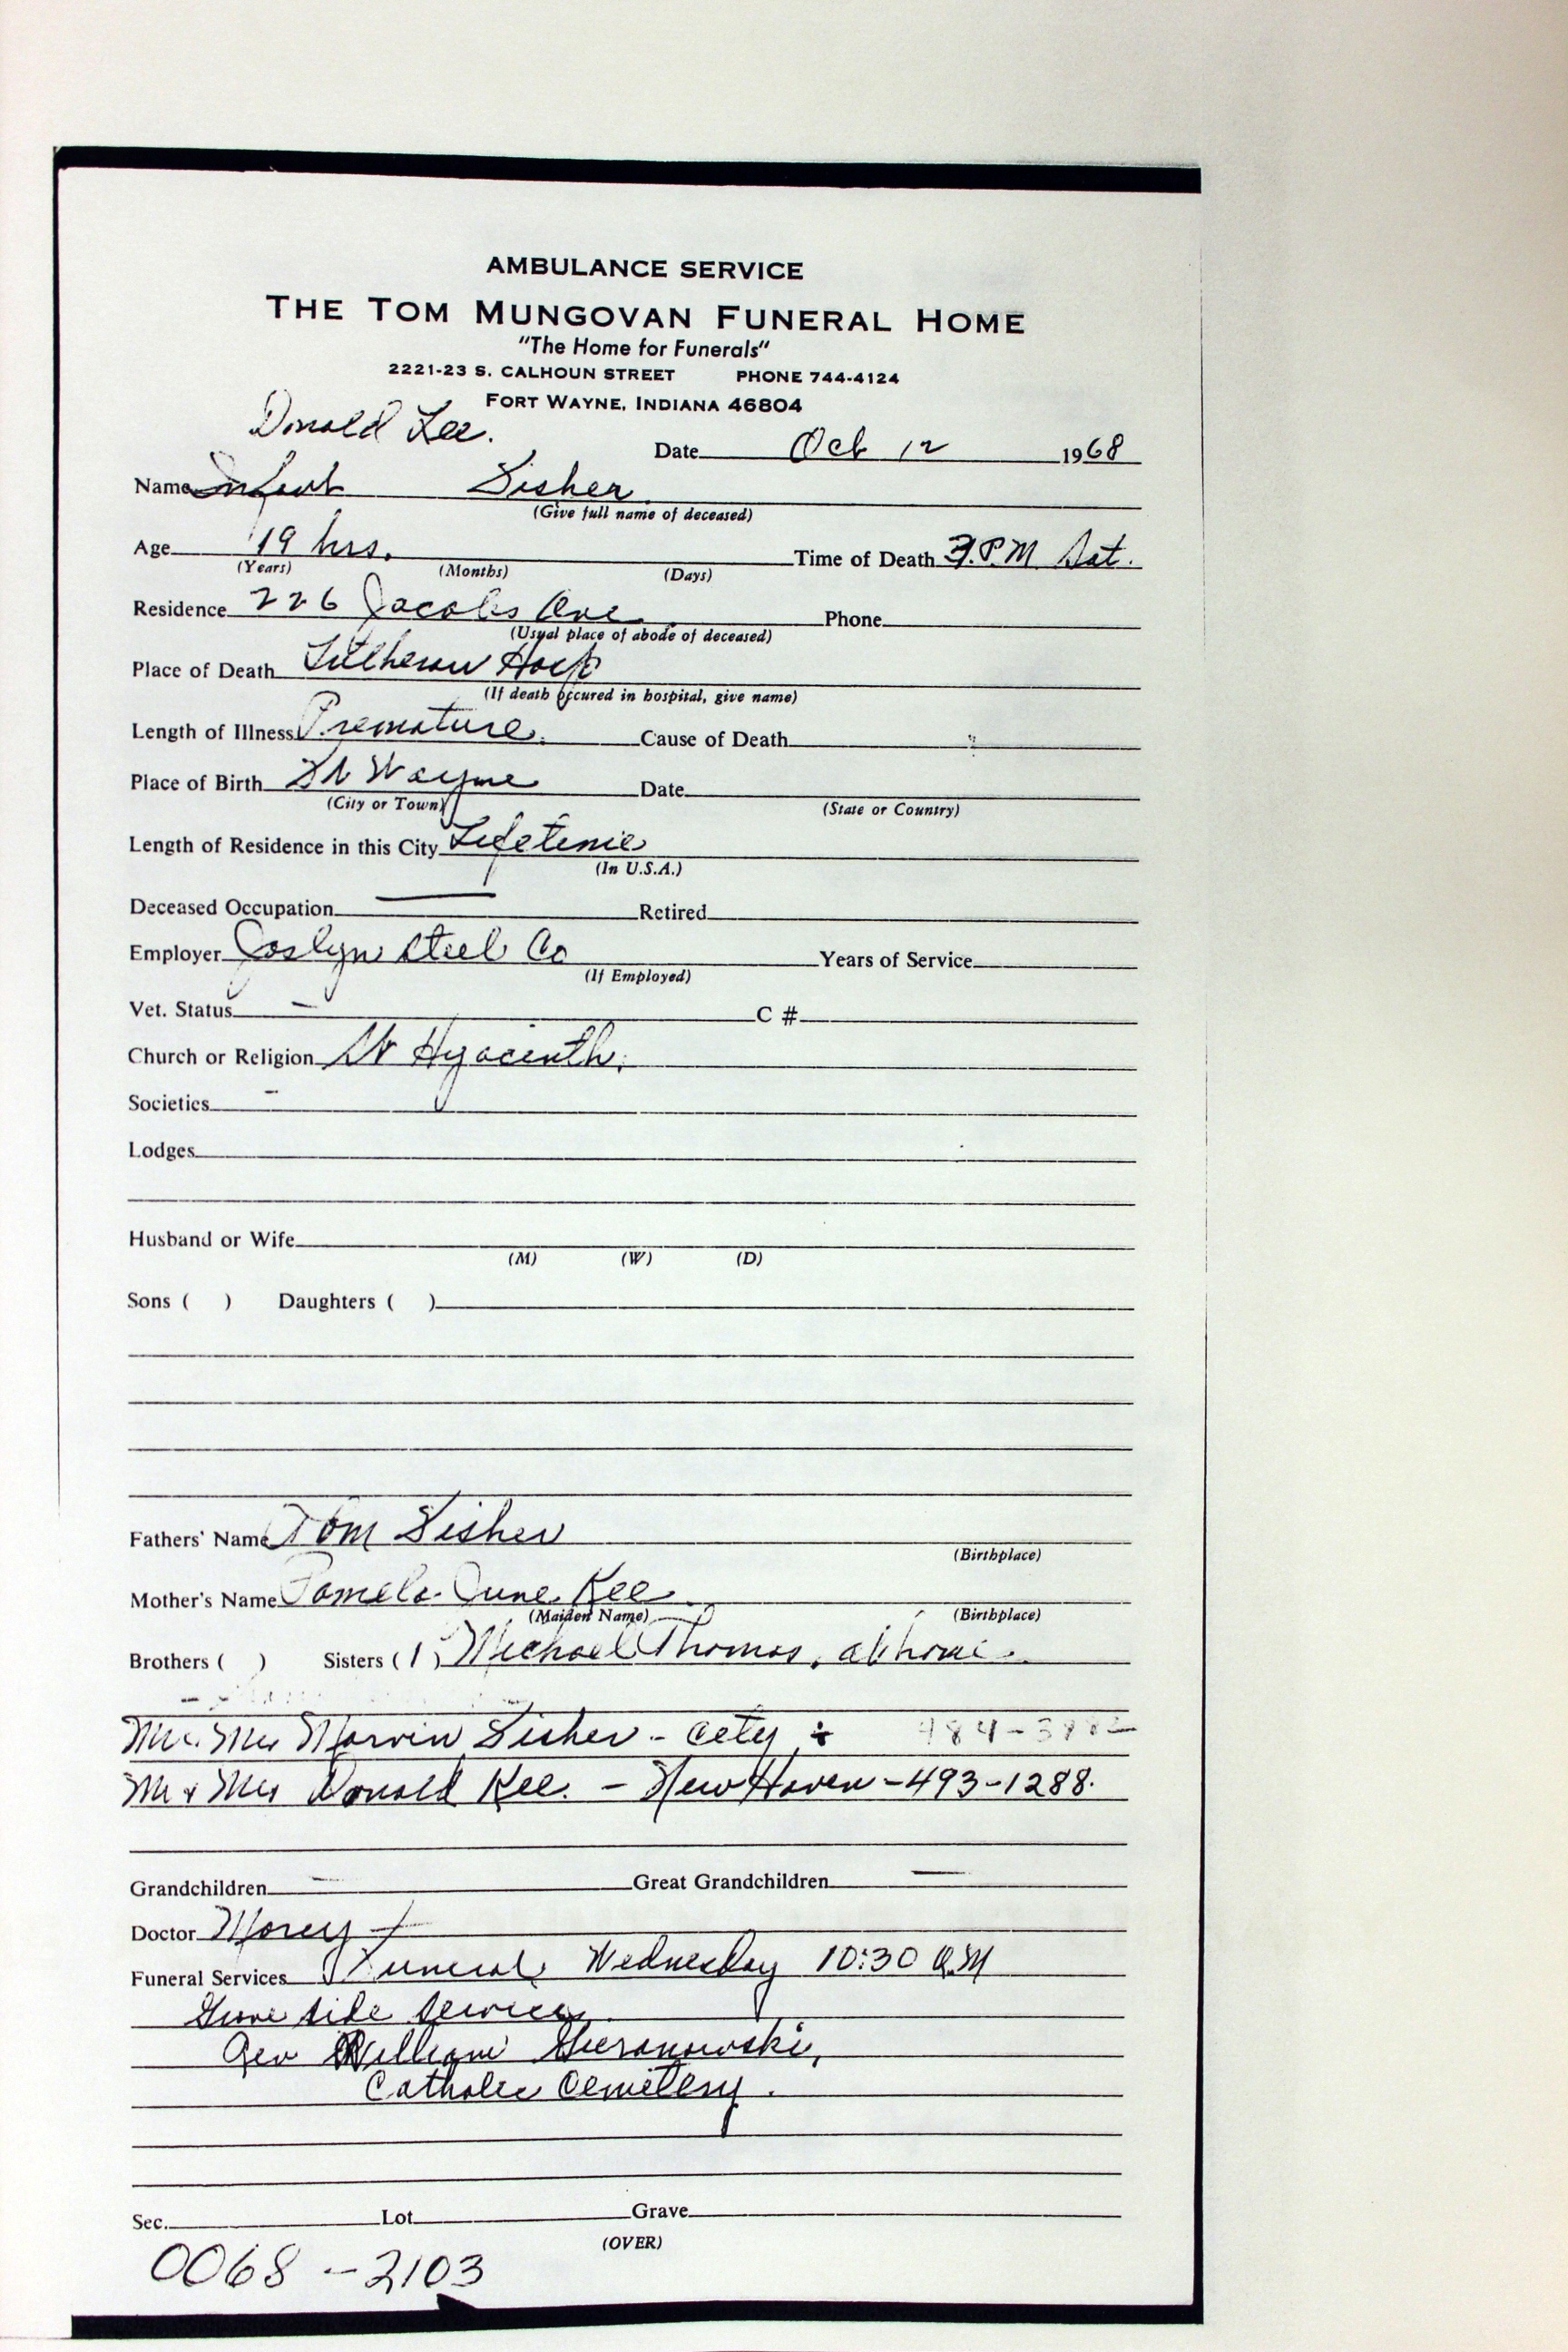 AMBULANCE SERVICE
THE TOM MUNGOVAN FUNERAL HOME
"The Home for Funerals"
2221-23 S. CALHOUN STREET PHONE 744-4124
FORT WAYNE, INDIANA 46804
Donald Lee.
Date Oct 12 1968
Name Infant Lisher
(Give full name of deceased)
Age 19 hrs. Time of Death P.M Sat.
(Years) (Months) (Days)
Residence 226 Jacobs Ave. Phone
(Usual place of abode of deceased)
Place of Death Lutheran Hosp
(If death occured in hospital, give name)
Length of Illness Premature. Cause of Death
Place of Birth Ft Wayne Date
(City or Town) (State or Country)
Length of Residence in this City Lifetime
(In U.S.A.)
Deceased Occupation — Retired
Employer Joslyn Steel Co Years of Service
(If Employed)
Vet. Status — C #
Church or Religion St Hyacinth.
Societies -
Lodges
Husband or Wife
(M) (W) (D)
Sons ( ) Daughters ( )
Fathers' Name Tom Lisher
(Birthplace)
Mother's Name Pamela June Kee
(Maiden Name) (Birthplace)
Brothers ( ) Sisters (1) Michael Thomas, at home.
Mr. Mrs Marvin Lisher - City
Mr & Mrs Donald Kee. - New Haven - 493-1288.
Grandchildren — Great Grandchildren —
Doctor Morey
Funeral Services Funeral Wednesday 10:30 AM
Grave side services.
Rev William
Catholic Cemetery.
Sec. Lot Grave
(OVER)
0068 - 2103